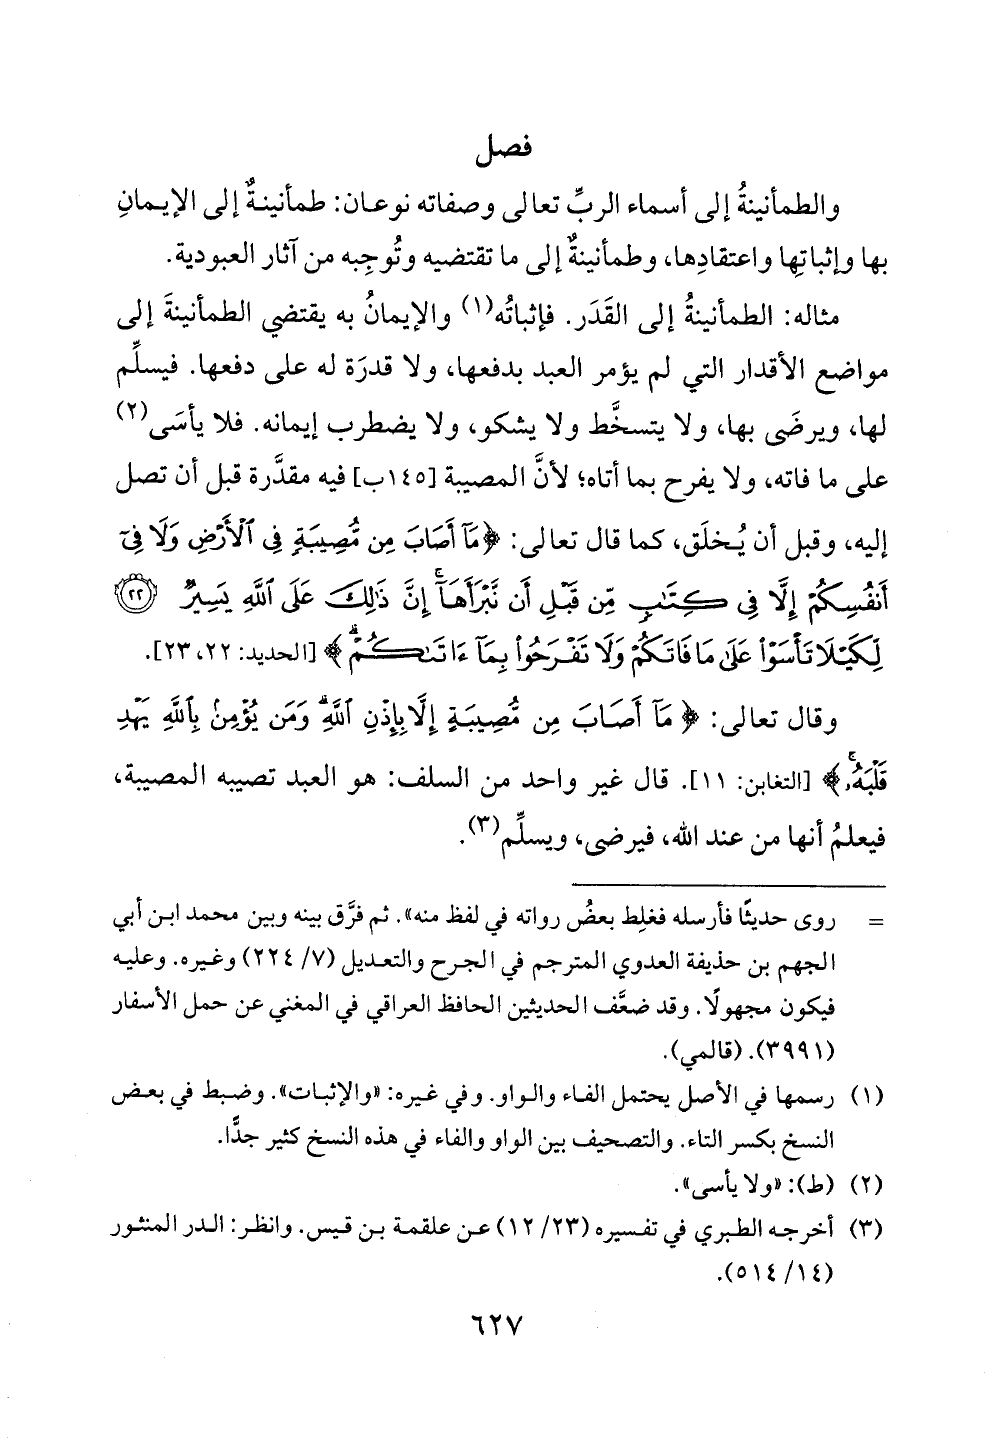 فصل
والطمأنينةُ إلى أسماء الربِّ تعالى وصفاته نوعان: طمأنينةٌ إلى الإيمانِ
بها وإثباتِها واعتقادِها، وطمأنينةٌ إلى ما تقتضيه وتُوجِبه من آثار العبودية.
مثاله: الطمأنينةُ إلى القَدَر. فإثباتُه(١) والإيمانُ به يقتضي الطمأنينةَ إلى
مواضع الأقدار التي لم يؤمر العبد بدفعها، ولا قدرَة له على دفعها. فيسلِّم
لها، ويرضَى بها، ولا يتسخَّط ولا يشكو، ولا يضطرب إيمانه. فلا يأسَى(٢)
على ما فاته، ولا يفرح بما أتاه؛ لأنَّ المصيبة [١٤٥ب] فيه مقدَّرة قبل أن تصل
إليه، وقبل أن يُخلَق، كما قال تعالى: ﴿مَآ أَصَابَ مِن مُّصِيبَةٍ فِى ٱلْأَرْضِ وَلَا فِىٓ
أَنفُسِكُمْ إِلَّا فِى كِتَٰبٍ مِّن قَبْلِ أَن نَّبْرَأَهَآ ۚ إِنَّ ذَٰلِكَ عَلَى ٱللَّهِ يَسِيرٌ ۝٢٢
لِّكَيْلَا تَأْسَوْا۟ عَلَىٰ مَا فَاتَكُمْ وَلَا تَفْرَحُوا۟ بِمَآ ءَاتَىٰكُمْ ۗ﴾ [الحديد: ٢٢، ٢٣].
وقال تعالى: ﴿مَآ أَصَابَ مِن مُّصِيبَةٍ إِلَّا بِإِذْنِ ٱللَّهِ ۗ وَمَن يُؤْمِنۢ بِٱللَّهِ يَهْدِ
قَلْبَهُۥ ۚ﴾ [التغابن: ١١]. قال غير واحد من السلف: هو العبد تصيبه المصيبة،
فيعلمُ أنها من عند الله، فيرضى، ويسلِّم(٣).
= روى حديثًا فأرسله فغلِط بعضُ رواته في لفظ منه». ثم فرَّق بينه وبين محمد ابن أبي
الجهم بن حذيفة العدوي المترجم في الجرح والتعديل (٧/ ٢٢٤) وغيره. وعليه
فيكون مجهولًا. وقد ضعَّف الحديثين الحافظ العراقي في المغني عن حمل الأسفار
(٣٩٩١). (قالمي).
(١) رسمها في الأصل يحتمل الفاء والواو. وفي غيره: «والإثبات». وضبط في بعض
النسخ بكسر التاء. والتصحيف بين الواو والفاء في هذه النسخ كثير جدًّا.
(٢) (ط): «ولا يأسى».
(٣) أخرجه الطبري في تفسيره (٢٣/ ١٢) عن علقمة بن قيس. وانظر: الدر المنثور
(١٤/ ٥١٤).
٦٢٧